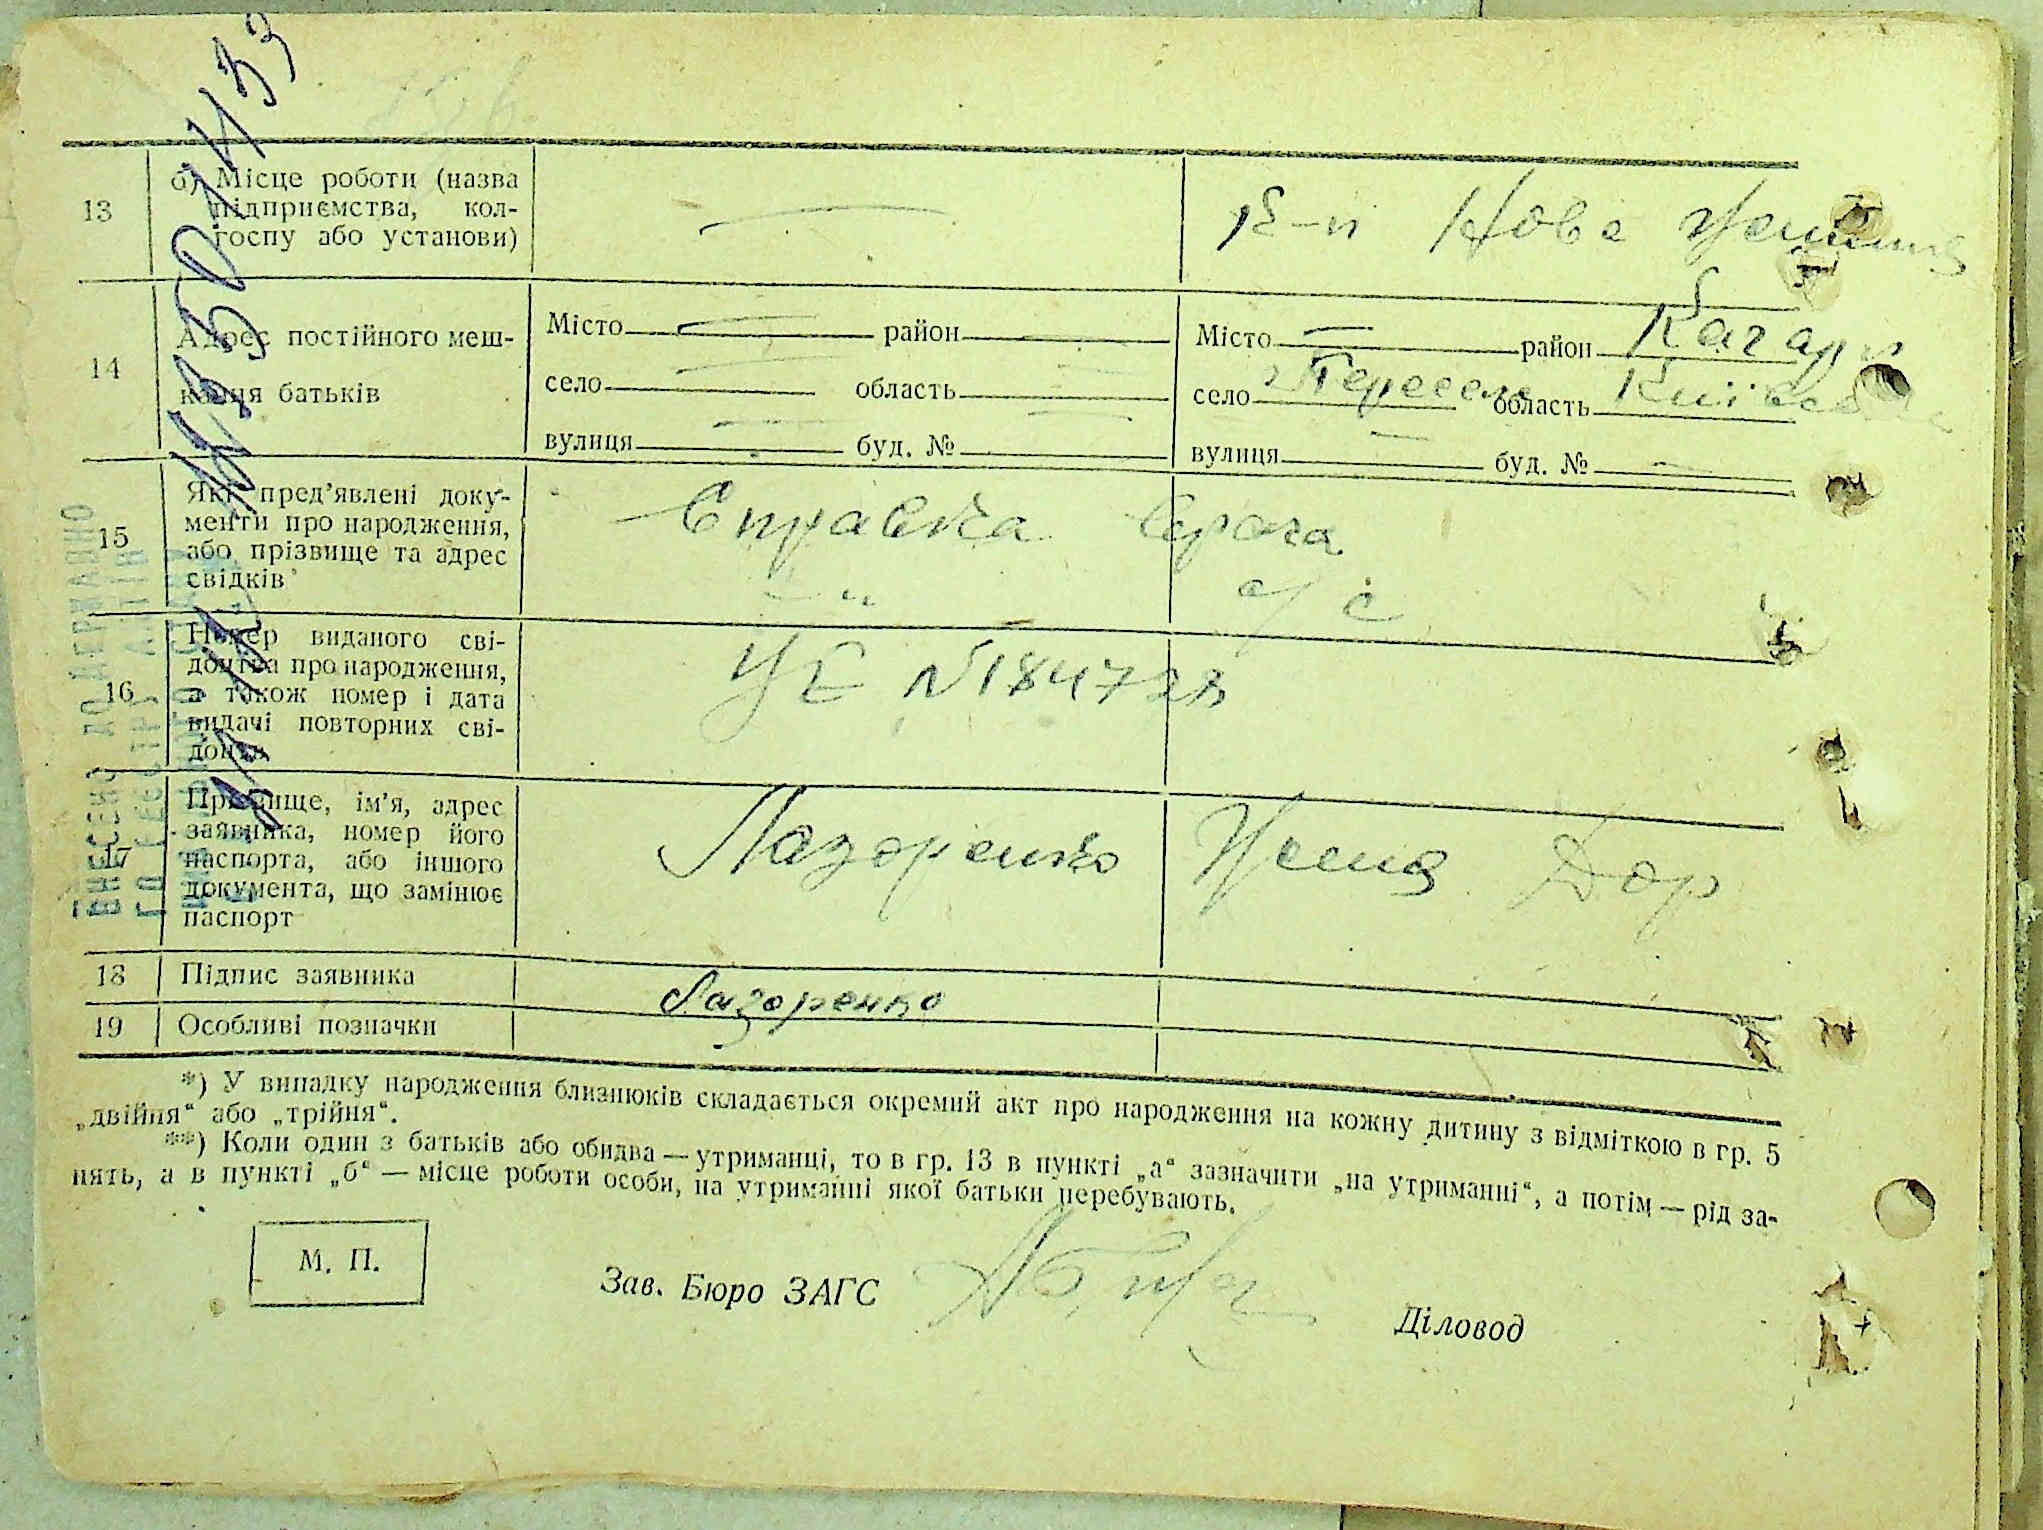 13 б) Місце роботи (назва
підприємства, кол-
госпу або установи) — к-п Нове
14 Адрес постійного меш-
кання батьків
Місто — район —
село — область —
вулиця — буд. № —
Місто — район Кагарл
село Переселе область Київська
вулиця — буд. № —
15 Які пред'явлені доку-
менти про народження,
або прізвище та адрес
свідків
Справка врача
— „ с/с
16 Номер виданого сві-
доцтва про народження,
а також номер і дата
видачі повторних сві-
доцтв
УЕ №184728
17 Прізвище, ім'я, адрес
заявника, номер його
паспорта, або іншого
документа, що замінює
паспорт
Лазоренко Дор
18 Підпис заявника Лазоренко
19 Особливі позначки
*) У випадку народження близнюків складається окремий акт про народження на кожну дитину з відміткою в гр. 5
„двійня“ або „трійня“.
**) Коли один з батьків або обидва — утриманці, то в гр. 13 в пункті „а“ зазначити „на утриманні“, а потім — рід за-
нять, а в пункті „б“ — місце роботи особи, на утриманні якої батьки перебувають.
М. П.
Зав. Бюро ЗАГС
Діловод
ВНЕСЕНО ДО ДЕРЖАВНО
ГО РЕЄСТРУ АКТІВ